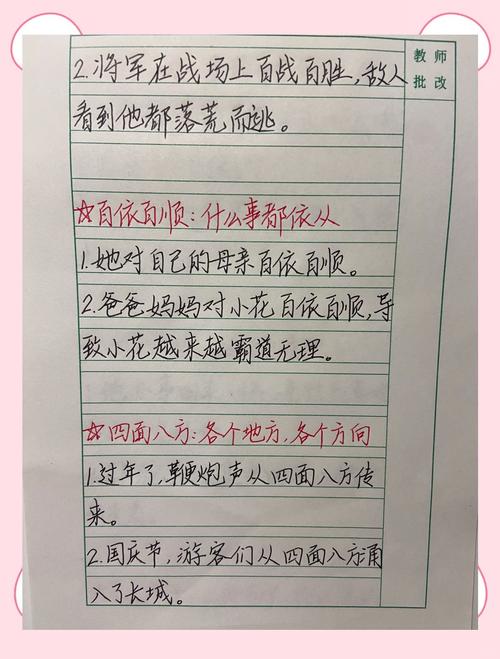 教师
批改
2.将军在战场上百战百胜,敌人
看到他都落荒而逃。
☆百依百顺:什么事都依从
1.她对自己的母亲百依百顺。
2.爸爸妈妈对小花百依百顺,导
致小花越来越霸道无理。
☆四面八方:各个地方,各个方向
1.过年了,鞭炮声从四面八方传
来。
2.国庆节,游客们从四面八方涌
入了长城。